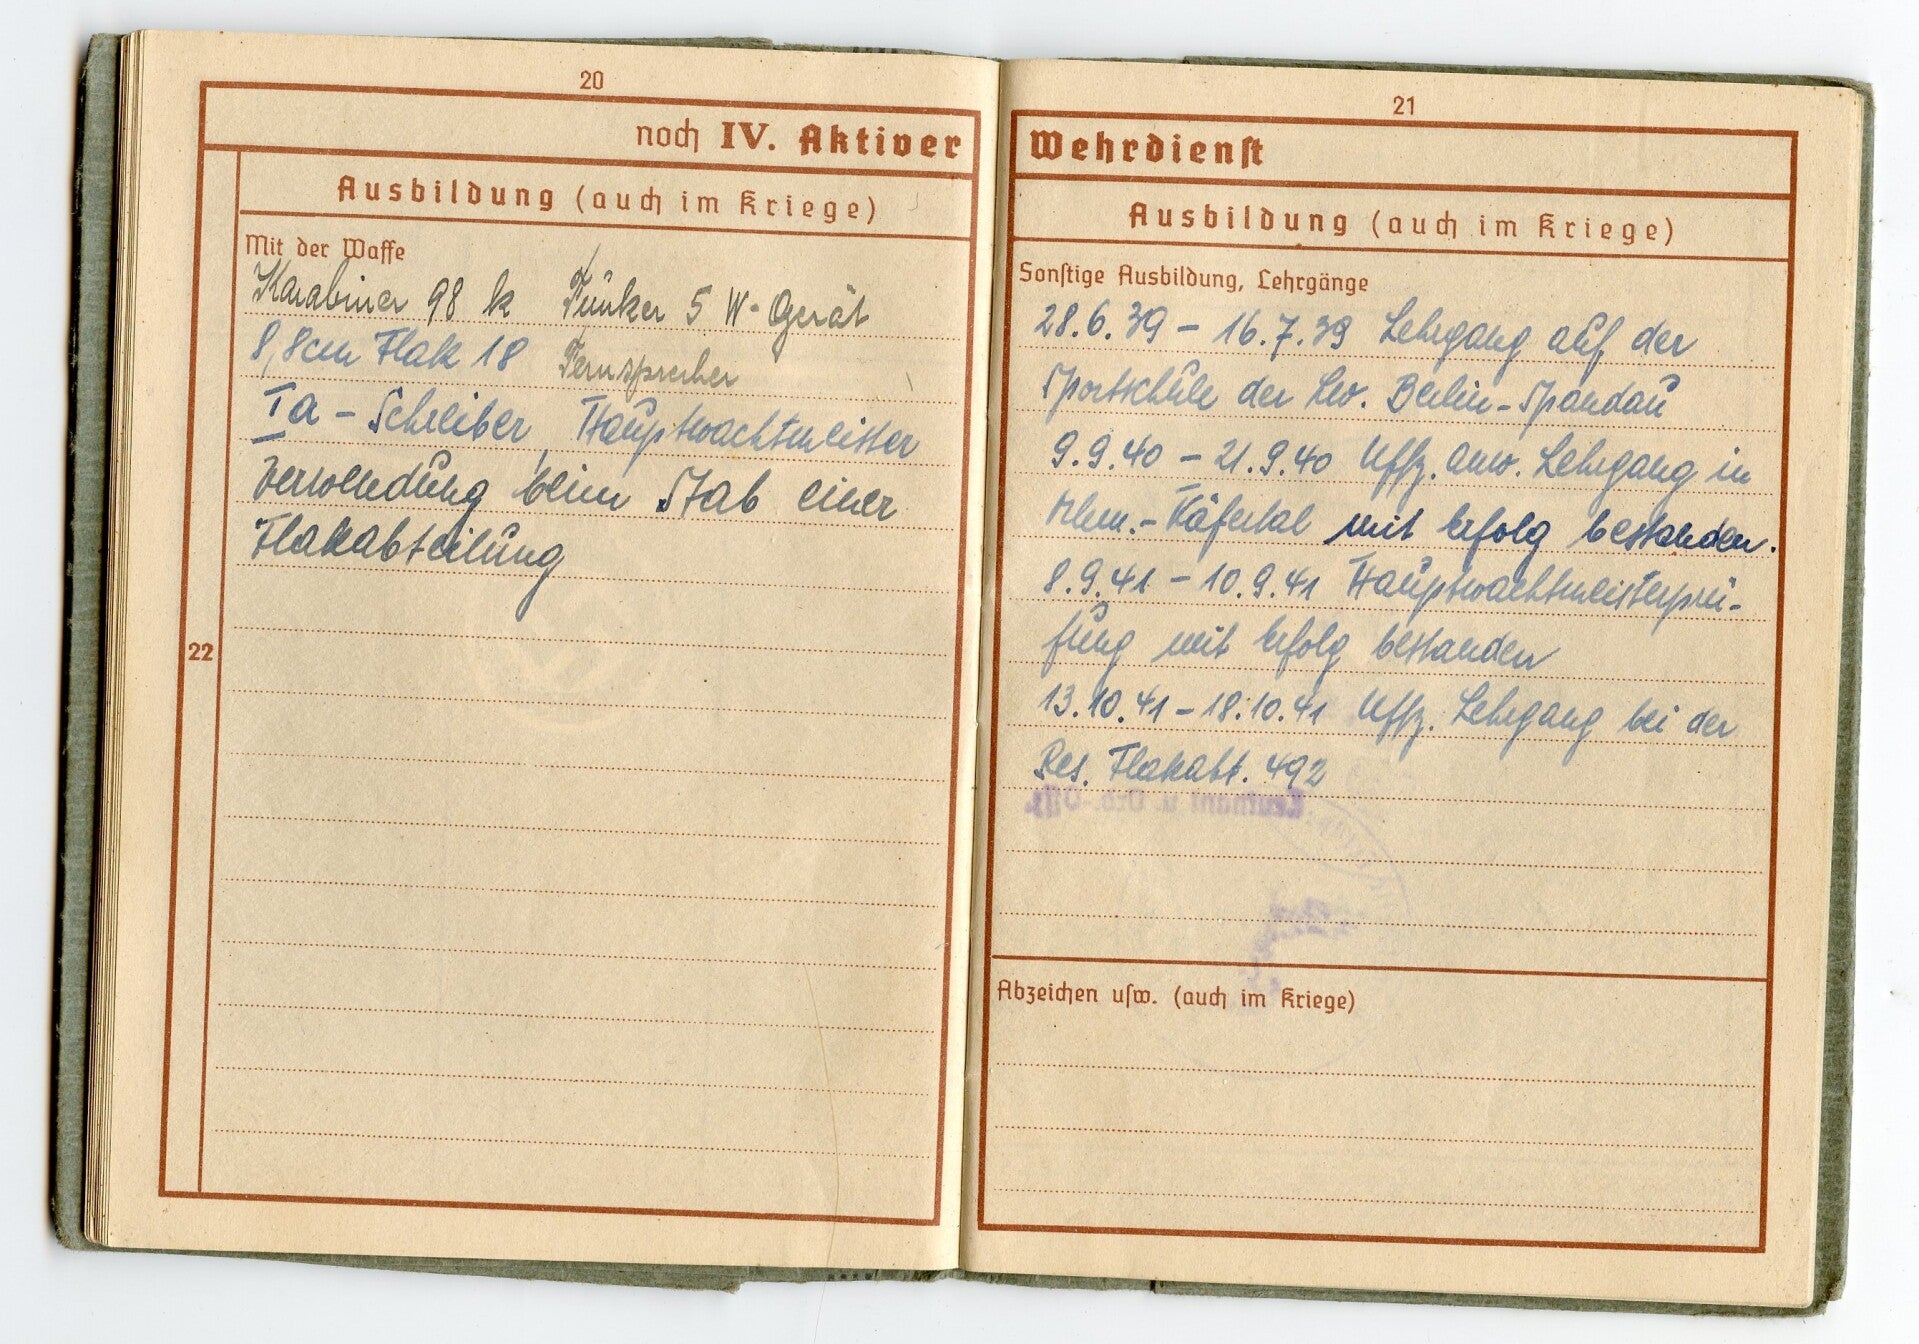 20
noch IV. Aktiver
Ausbildung (auch im Kriege)
Mit der Waffe
Karabiner 98 k Funker 5 W-Gerät
8,8cm Flak 18 Fernsprecher
Ia - Schreiber, Hauptwachtmeister
Verwendung beim Stab einer
Flakabteilung
22
21
Wehrdienst
Ausbildung (auch im Kriege)
Sonstige Ausbildung, Lehrgänge
28.6.39 - 16.7.39 Lehrgang auf der
Sportschule der Lw. Berlin-Spandau
9.9.40 - 21.9.40 Uffz. anw. Lehrgang in
Mhm.-Käfertal mit Erfolg bestanden.
8.9.41 - 10.9.41 Hauptwachtmeisterprü-
fung mit Erfolg bestanden
13.10.41 - 18.10.41 Uffz. Lehrgang bei der
Res. Flakabt. 492
Leutnant u. Ord.-Offz.
Abzeichen usw. (auch im Kriege)